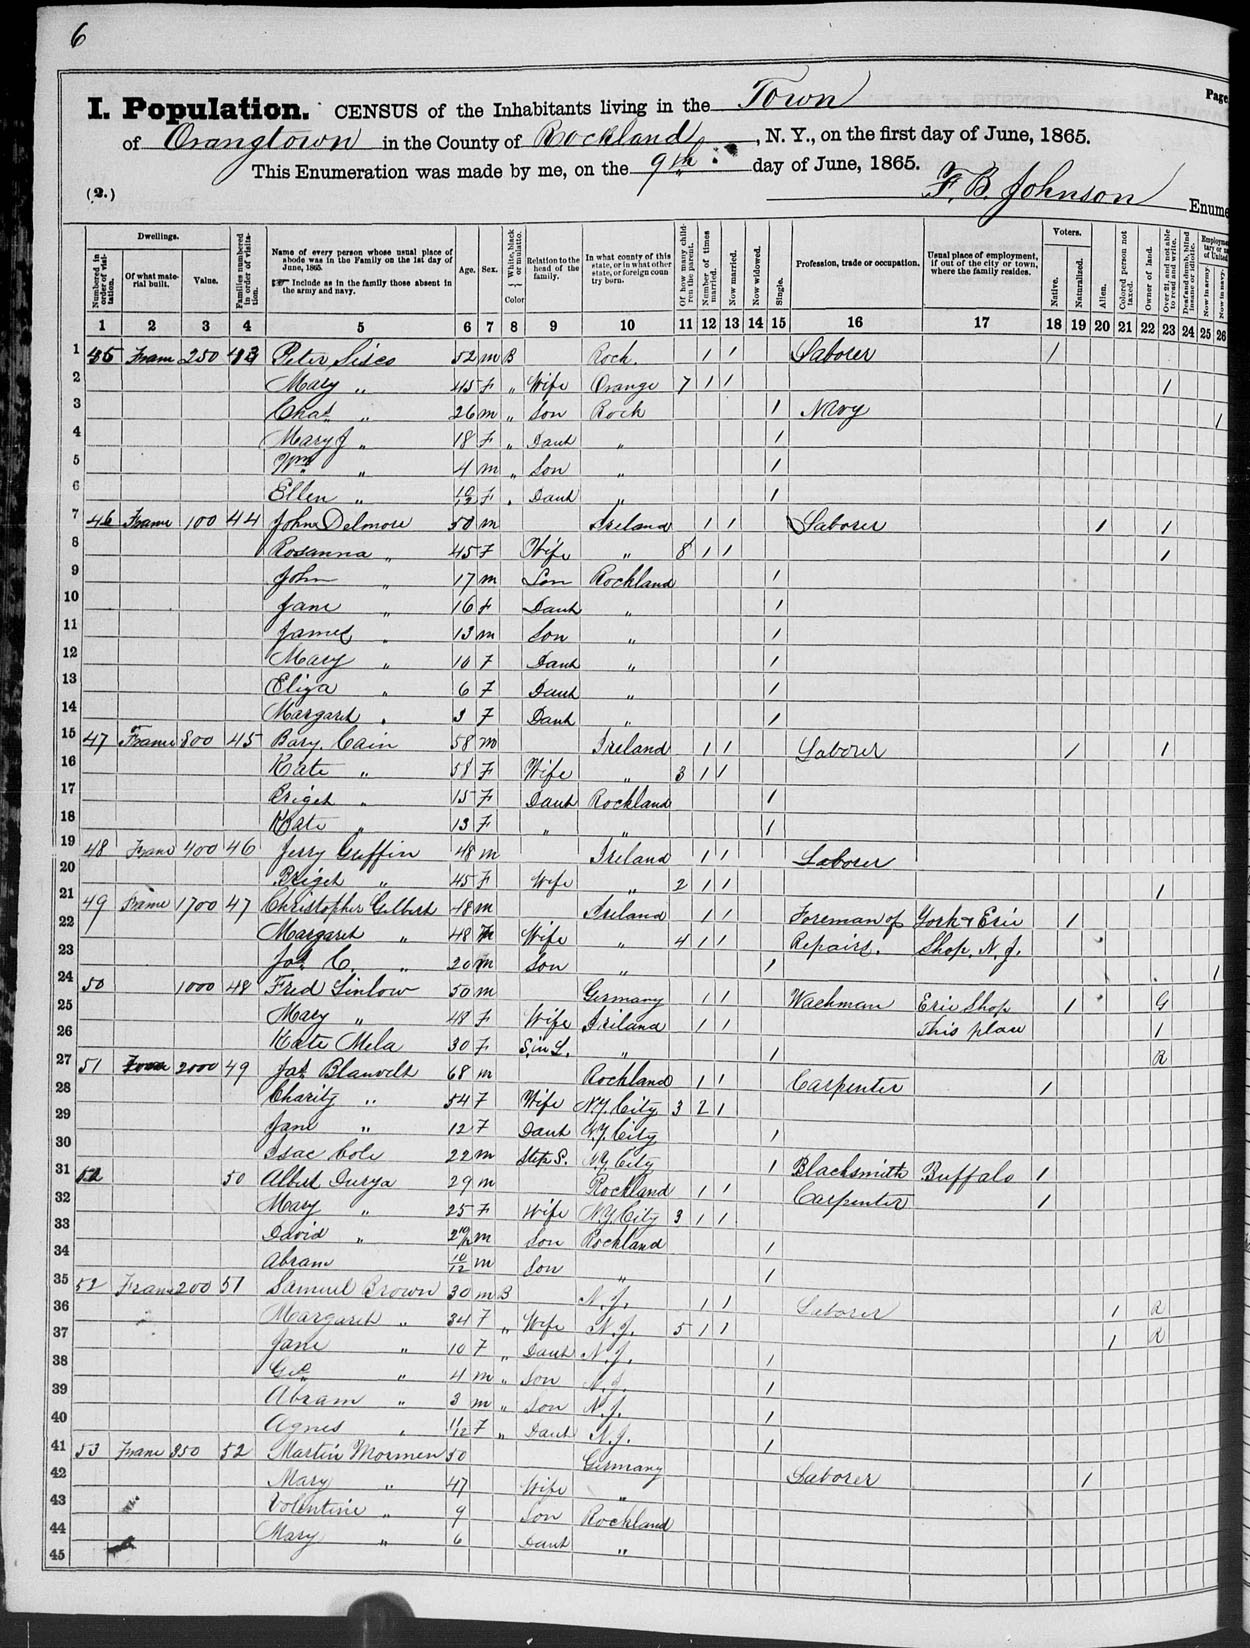 6
I. Population. CENSUS of the Inhabitants living in the Town Page
of Orangtown in the County of Rockland, N. Y., on the first day of June, 1865.
This Enumeration was made by me, on the 9th day of June, 1865.
(2.) F. B. Johnson Enume
Dwellings. Voters. Employme
Numbered in order of visitation. Of what material built. Value. Families numbered in order of visitation. Name of every person whose usual place of abode was in the Family on the 1st day of June, 1865. Include as in the family those absent in the army and navy. Age. Sex. White, black or mulatto. Color Relation to the head of the family. In what county of this state, or in what other state, or foreign country born. Of how many children the parent. Number of times married. Now married. Now widowed. Single. Profession, trade or occupation. Usual place of employment, if out of the city or town, where the family resides. Native. Naturalized. Alien. Colored person not taxed. Owner of land. Over 21, and not able to read and write. Deaf and dumb, blind insane or idiotic. Now in army Now in navy
1 2 3 4 5 6 7 8 9 10 11 12 13 14 15 16 17 18 19 20 21 22 23 24 25 26
1 45 Fram 250 43 Peter Sisco 52 m B Rock. 1 1 Laborer 1
2 Mary „ 45 F „ Wife Orange 7 1 1 1
3 Chas „ 26 m „ Son Rock 1 Navy 1
4 Mary J „ 18 F „ Daut „ 1
5 Wm „ 4 m „ Son „ 1
6 Ellen „ 10/12 F „ Daut „ 1
7 46 Frame 100 44 John Delmore 50 m Ireland 1 1 Laborer 1 1
8 Rosanna „ 45 F Wife „ 8 1 1 1
9 John „ 17 m Son Rockland 1
10 Jane „ 16 F Daut „ 1
11 James „ 13 m Son „ 1
12 Mary „ 10 F Daut „ 1
13 Eliza „ 6 F Daut „ 1
14 Margaret „ 3 F Daut „ 1
15 47 Frame 800 45 Bary Cain 58 m Ireland 1 1 Laborer 1 1
16 Kate „ 58 F Wife „ 3 1 1
17 Briget „ 15 F Daut Rockland 1
18 Kate „ 13 F „ „ 1
19 48 Frame 400 46 Jerry Griffin 48 m Ireland 1 1 Laborer
20 Briget „ 45 F Wife „ 2 1 1 1
21 49 Frame 1700 47 Christopher Gilbert 48 m Ireland 1 1 Foreman of York & Erie 1
22 Margaret „ 48 F Wife „ 4 1 1 Repairs. Shop. N. J.
23 Jos C. „ 20 m Son „ 1 1
24 50 1000 48 Fred Linlow 50 m Germany 1 1 Wachman Erie Shop 1 G
25 Mary „ 48 F Wife Ireland 1 1 This place 1
26 Kate Mela 30 F S. in L. „ 1 R
27 51 Frame 2000 49 Jas Blauvelt 68 m Rockland 1 1 Carpenter 1
28 Charity „ 54 F Wife N.Y. City 3 2 1
29 Jane „ 12 F Daut N.Y. City 1
30 Isac Cole 22 m Step S. N.Y. City 1 Blacksmith Buffalo 1
31 52 50 Albert Durya 29 m Rockland 1 1 Carpenter 1
32 Mary „ 25 F Wife N.Y. City 3 1 1
33 David „ 2 10/12 m Son Rockland 1
34 Abram 10/12 m Son „ 1
35 52 Frame 200 51 Samuel Brown 30 m B N. J. 1 1 Laborer 1 R
36 Margaret „ 34 F „ Wife N. J. 5 1 1 1 R
37 Jane „ 10 F „ Daut N. J. 1
38 Geo „ 4 m „ Son N. J. 1
39 Abram „ 3 m „ Son N. J. 1
40 Agnes „ 1/12 F „ Daut N. J. 1
41 53 Frame 350 52 Martin Mormen 50 Germany
42 Mary „ 47 Wife „ Laborer 1
43 Volentine „ 9 Son Rockland
44 Mary „ 6 Daut „
45